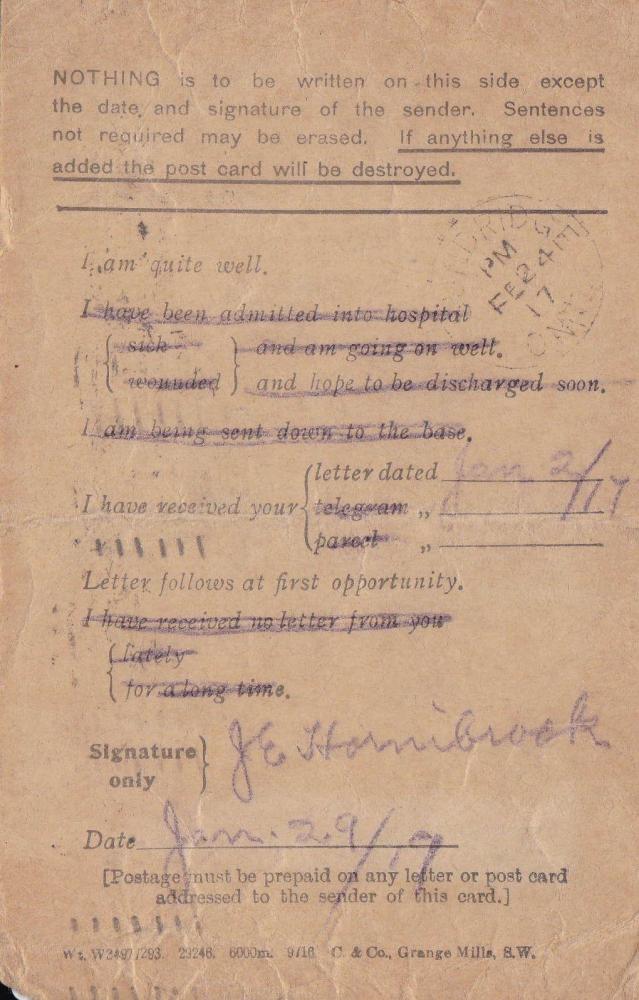 NOTHING is to be written on this side except
the date and signature of the sender. Sentences
not required may be erased. If anything else is
added the post card will be destroyed.
PM
FE 24
17
I am quite well.
I have been admitted into hospital
sick and am going on well.
wounded and hope to be discharged soon.
I am being sent down to the base.
letter dated Jan 2/17
I have received your telegram „
parcel „
Letter follows at first opportunity.
I have received no letter from you
lately
for a long time.
Signature only J E Hornibrook
Date Jan. 29/17
[Postage must be prepaid on any letter or post card
addressed to the sender of this card.]
29246. 6000m. 9/16 C. & Co., Grange Mills, S.W.